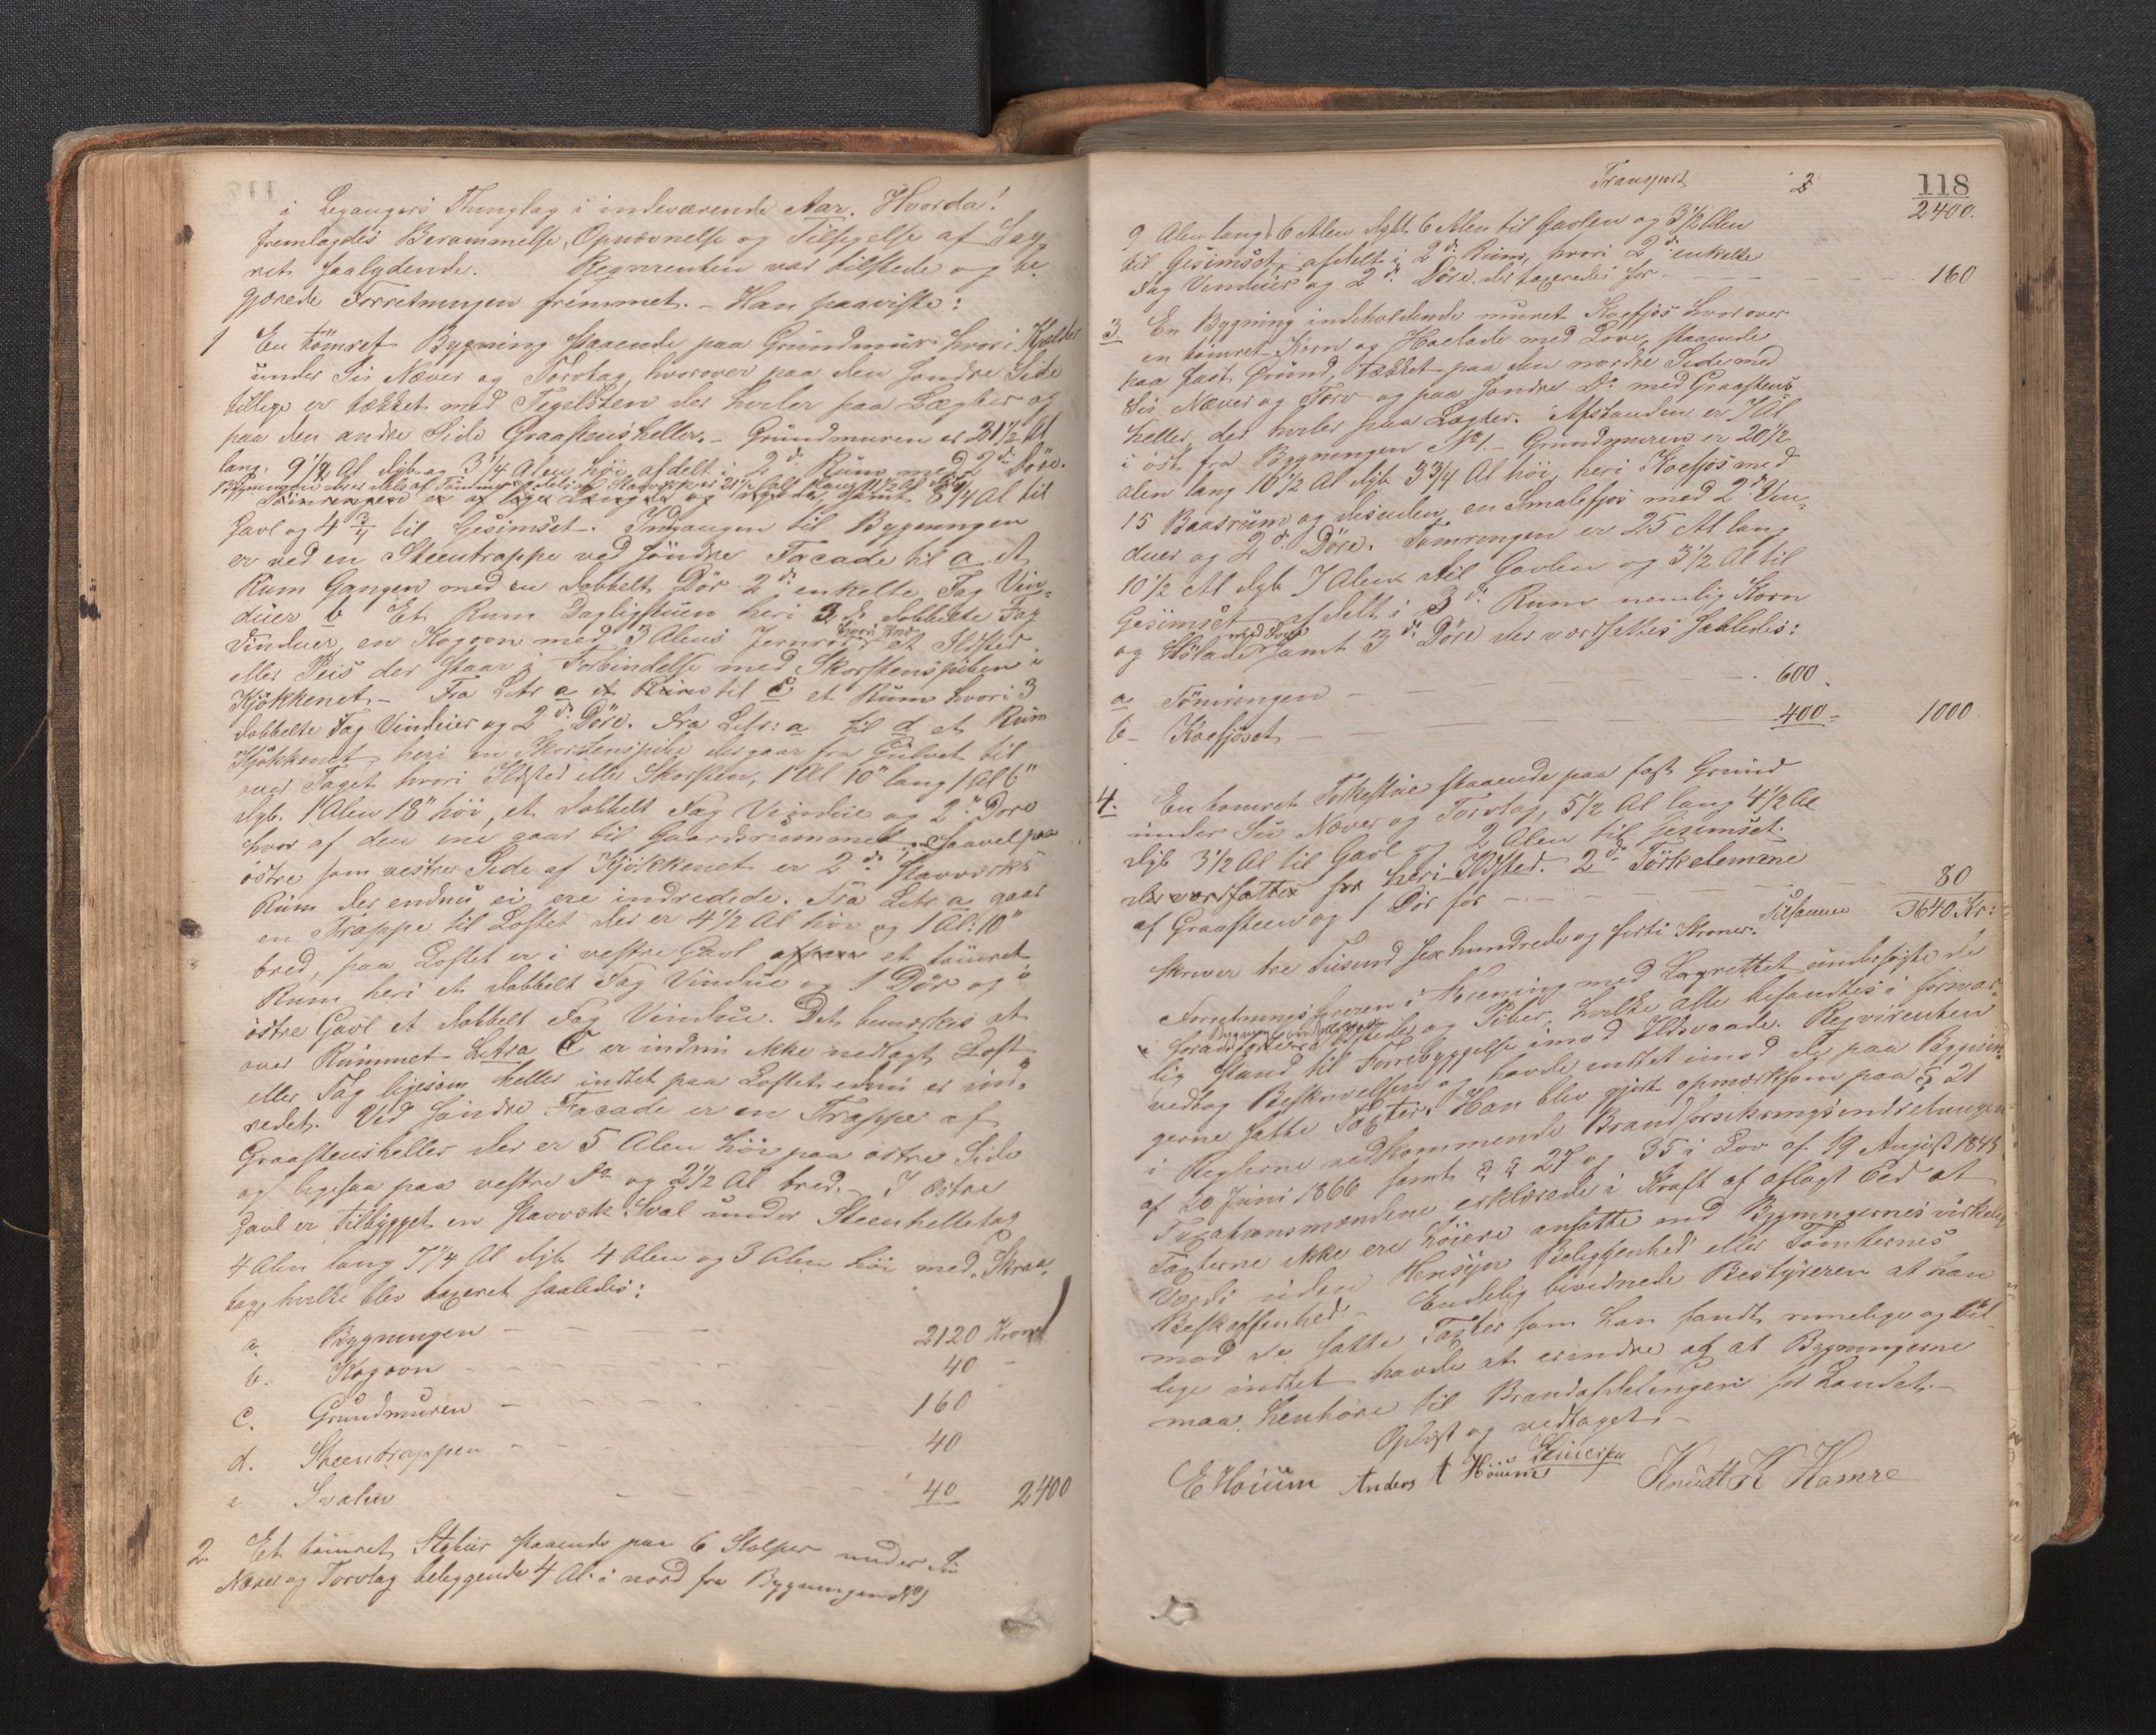 i Leganger's Thinglag i indeværende Aar. Hvorda!
fremlagdes Berammelse, Opnævnelse og Tilsigelse af Lag-
ret saalydende. Reqvirenten var tilstede og be-
gjærede Forretningen fremmet. - Han paaviste:
1 En tømret Bygning staaende paa Grundmur hvori Kjelder
under Sü Næver og Torvtag, hvorover paa den søndre Side
tillige er tækket med Tegelsten der hviler paa Lægter og
paa den andre Side Graastensheller. - Grundmuren er 21 1/2 Al
lang. 9 1/8 Al dyb og 3 1/4 Alen høi, afdelt i 2de Rum med 2de Døre.
Bygningen der er dels af Tømmer og dels af Stavværk er 21 1/2 Al lang
Tømringen er af lige Længde og samt 8 1/4 Al til
Gavl og 4 3/4 til Gesimset. Indgangen til Bygningen
er ved en Steentrappe ved søndre Facade til a et
Rum Gangen med en dobbelt Dør 2de enkelte Fag Vin-
duer b Et Rum Dagligstuen heri 3 de dobbelte Fag
Vinduer, en Kogovn med 3 Alens Jernrør et Ildsted
eller Peis der staar i Forbindelse med Skorstenspiben i
Kjøkkenet. - Fra Litr a et Rum til C et Rum hvori 3
dobbelte Fag Vinduer og 2de Døre. Fra Litr: a til d et Rum
Kjøkkenet, heri en Skorstenspibe der gaar fra Gulvet til
over Taget hvori Ildsted eller Skorsten, 1 Al 10" lang 1 Al 6"
dyb. 1 Alen 18" høi, et dobbelt Fag Vindue og 2de Døre
hvor af den ene gaar til Gaardsrummet. Saavel paa
østre som vestre Side af Kjøkkenet er 2de Stavværks
Rum der endnu ei ere indredede. Fra Litr a gaar
en Trappe til Loftet der er 4 1/2 Al høi og 1 Al: 10"
bred, paa Loftet er i vestre Gavl et tømret
Rum heri et dobbelt Fag Vindue og 1 Dør og i
østre Gavl et dobbelt Fag Vindue. Det bemærkes at
over Rummet Litra C er endnu ikke nedlagt Loft
eller Tag ligesom heller intet paa Loftet endnu er ind-
redet. Ved søndre Facade er en Trappe af
Graastensheller der er 5 Alen høi paa østre Side
og ligesaa paa vestre Do og 2 1/2 Al bred. - I østre
Gavl er tilbygget en Stavværk Sval under Steenhelletag
4 Alen lang 7 1/4 Al dyb 4 Alen og 3 Alen høi med Skraa-
tag, hvilke blev taxeret saaledes:
a. Bygningen - - - 2120 Kroner
b. Kogovn - - - 40 -
C. Grundmuren - - - 160
d. Steentrappen - - - 40
e Svalen - - - 40 2400
2 Et tømret Stabur staaende paa 6 Stolper under Sü
Næver og Torvtag beliggende 4 Al: i nord fra Bygningen No 1
118
Transport 2400.
9 Alen lang 6 Alen dybt 6 Alen til Gavlen og 3 1/2 Alen
til Gesimset, afdelt i 2de Rum, hvori 2de enkelte
Fag Vinduer og 2de Døre der taxeredes for - - 160
3. En Bygning indeholdende muret Koefjøs hvorover
en tømret Korn og Høelade med Love, staaende
paa fast Grund, tækket paa den nordre Side med
Sü Næver og Torv og paa søndre Do med Graastens
heller, der hviler paa Lægter. Afstanden er 7 Al
i øst fra Bygningen No 1. - Grundmuren er 20 1/2
alen lang 10 1/2 Al dyb 3 3/4 Al høi, heri Koefjøs med
15 Baasrum og desuden en Smalefjøs med 2de Vin-
duer og 2de Døre. Tømringen er 25 Al lang
10 1/2 Al dyb 7 Alen til Gavlen og 3 1/2 Al til
Gesimset afdelt i 3de Rum nemlig Korn
og Hølade med Love samt 3de Døre der værdsattes saaledes:
a Tømringen - - - 600
b - Koefjøset - - - 400 - 1000
4. En tømret Torkestue staaende paa fast Grund
under Sü Næver og Torvtag, 5 1/2 Al lang 4 1/2 Al
dyb 3 1/2 Al til Gavl og 2 Alen til Gesimset.
der værdsattes for heri Ildsted. 2de Tørkelemme
af Graasteen og 1 Dør for - - - 80
Tilsammen 3640 Kr:
skriver tre Tusend sex hundrede og firti Kroner.
Forretningsføreren i Forening med Lagrettet undersøgte de
i Ildsteder og Piber, hvilke alle befandtes i forsvar-
lig Stand til Forebyggelse imod Ildsvaade. Reqvirenten
vedtog Beskrivelsen og havde intet imod de paa Bygnin-
gerne satte Taxter. Han blev gjort opmærksom paa § 21
i Reglerne vedkommende Brandforsikringsindretningen
af 20 Juni 1866 samt § § 27 og 35 i Lov af 19 August 1845
Taxationsmændene erklærede i Kraft af aflagt Eed at
Taxterne ikke ere høiere ansatte end Bygningernes virkelige
Værdi uden Hensyn Beliggenhed eller Tomternes
Beskaffenhed. - Endelig bevidnede Bestyreren at han
mod de satte Taxter som han fandt rimelige og bil-
lige intet havde at erindre og at Bygningerne
maa henhøre til Brandafdelingen for Landet. -
Oplæst og vedtaget. -
E Høium Anders A Høium Knudt K Hamre